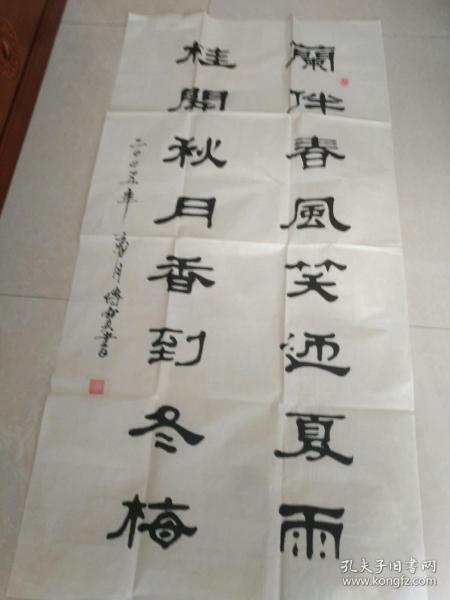 蘭伴春風笑迎夏雨
桂開秋月香到冬梅
二〇〇五年
孔夫子旧书网
www.kongfz.com